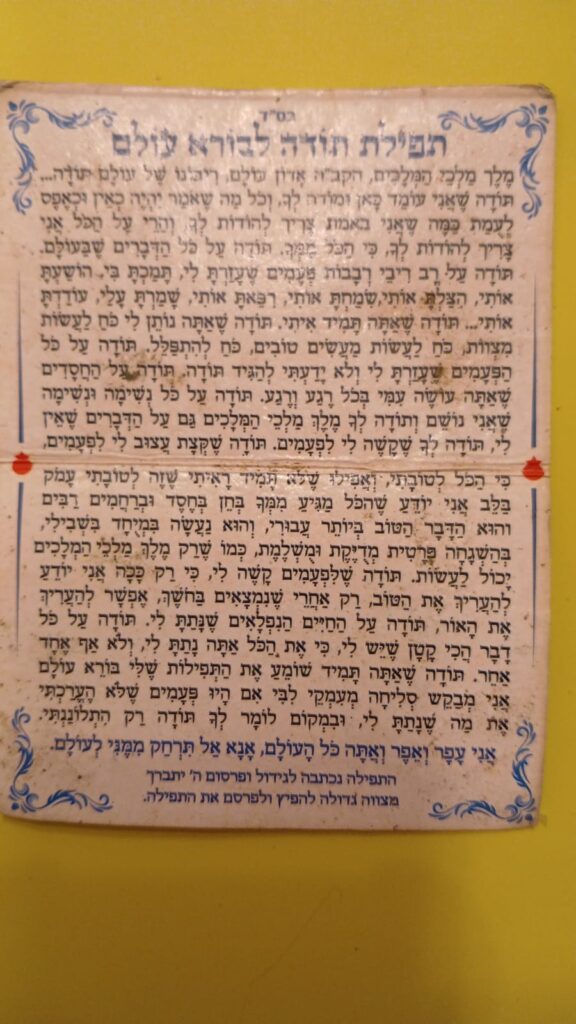 בס"ד
תפילת תודה לבורא עולם
מֶלֶךְ מַלְכֵי הַמְּלָכִים, הקב"ה אֲדוֹן עוֹלָם, רִיבּוֹנוֹ שֶׁל עוֹלָם תּוֹדָה...
תּוֹדָה שֶׁאֲנִי עוֹמֵד כָּאן וּמוֹדֶה לְךָ, וְכֹל מַה שֶׁאֹמַר יִהְיֶה כְּאַיִן וּכְאֶפֶס
לְעֻמַּת כַּמָּה שֶׁאֲנִי בֶּאֱמֶת צָרִיךְ לְהוֹדוֹת לְךָ. וַהֲרֵי עַל הַכֹּל אֲנִי
צָרִיךְ לְהוֹדוֹת לְךָ, כִּי הַכֹּל מִמְּךָ. תּוֹדָה עַל כֹּל הַדְּבָרִים שֶׁבָּעוֹלָם.
תּוֹדָה עַל רֹב רִיבֵי רְבָבוֹת פְּעָמִים שֶׁעָזַרְתָּ לִי, תָּמַכְתָּ בִּי, הוֹשַׁעְתָּ
אוֹתִי, הִצַּלְתָּ אוֹתִי, שִׂמַּחְתָּ אוֹתִי, רִפֵּאתָ אוֹתִי, שָׁמַרְתָּ עָלַי, עוֹדַדְתָּ
אוֹתִי... תּוֹדָה שֶׁאַתָּה תָּמִיד אִיתִּי. תּוֹדָה שֶׁאַתָּה נוֹתֵן לִי כֹּחַ לַעֲשׂוֹת
מִצְווֹת, כֹּחַ לַעֲשׂוֹת מַעֲשִׂים טוֹבִים, כֹּחַ לְהִתְפַּלֵּל. תּוֹדָה עַל כֹּל
הַפְּעָמִים שֶׁעָזַרְתָּ לִי וְלֹא יָדַעְתִּי לְהַגִּיד תּוֹדָה. תּוֹדָה עַל הַחֲסָדִים
שֶׁאַתָּה עוֹשֶׂה עִמִּי בְּכֹל רֶגַע וָרֶגַע. תּוֹדָה עַל כֹּל נְשִׁימָה וּנְשִׁימָה
שֶׁאֲנִי נוֹשֵׁם וְתוֹדָה לְךָ מֶלֶךְ מַלְכֵי הַמְּלָכִים גַּם עַל הַדְּבָרִים שֶׁאֵין
לִי, תּוֹדָה לְךָ שֶׁקָּשֶׁה לִי לִפְעָמִים. תּוֹדָה שֶׁקְּצָת עָצוּב לִי לִפְעָמִים,
כִּי הַכֹּל לְטוֹבָתִי, וַאֲפִילּוּ שֶׁלֹּא תָּמִיד רָאִיתִי שֶׁזֶּה לְטוֹבָתִי עָמֹק
בַּלֵּב אֲנִי יוֹדֵעַ שֶׁהַכֹּל מַגִּיעַ מִמְּךָ בְּחֵן בְּחֶסֶד וּבְרַחֲמִים רַבִּים
וְהוּא הַדָּבָר הַטּוֹב בְּיוֹתֵר עֲבוּרִי, וְהוּא נַעֲשָׂה בִּמְיֻחָד בִּשְׁבִילִי,
בְּהַשְׁגָּחָה פְּרָטִית מְדֻיֶּקֶת וּמֻשְׁלֶמֶת, כְּמוֹ שֶׁרַק מֶלֶךְ מַלְכֵי הַמְּלָכִים
יָכוֹל לַעֲשׂוֹת. תּוֹדָה שֶׁלִּפְעָמִים קָשֶׁה לִי, כִּי רַק כָּכָה אֲנִי יוֹדֵעַ
לְהַעֲרִיךְ אֶת הַטּוֹב, רַק אַחֲרֵי שֶׁנִּמְצָאִים בַּחֹשֶׁךְ, אֶפְשָׁר לְהַעֲרִיךְ
אֶת הָאוֹר, תּוֹדָה עַל הַחַיִּים הַנִּפְלָאִים שֶׁנָּתַתָּ לִי. תּוֹדָה עַל כֹּל
דָּבָר הֲכִי קָטָן שֶׁיֵּשׁ לִי, כִּי אֶת הַכֹּל אַתָּה נָתַתָּ לִי, וְלֹא אַף אֶחָד
אַחֵר. תּוֹדָה שֶׁאַתָּה תָּמִיד שׁוֹמֵעַ אֶת הַתְּפִילּוֹת שֶׁלִּי בּוֹרֵא עוֹלָם
אֲנִי מְבַקֵּשׁ סְלִיחָה מֵעִמְקֵי לִבִּי אִם הָיוּ פְּעָמִים שֶׁלֹּא הֶעֱרַכְתִּי
אֶת מַה שֶּׁנָּתַתָּ לִי, וּבִמְקוֹם לוֹמַר לְךָ תּוֹדָה רַק הִתְלוֹנַנְתִּי.
אֲנִי עָפָר וָאֵפֶר וְאַתָּה כֹּל הָעוֹלָם, אָנָא אַל תִּרְחַק מִמֶּנִּי לְעוֹלָם.
התפילה נכתבה לגידול ופרסום ה' יתברך
מצווה גדולה להפיץ ולפרסם את התפילה.